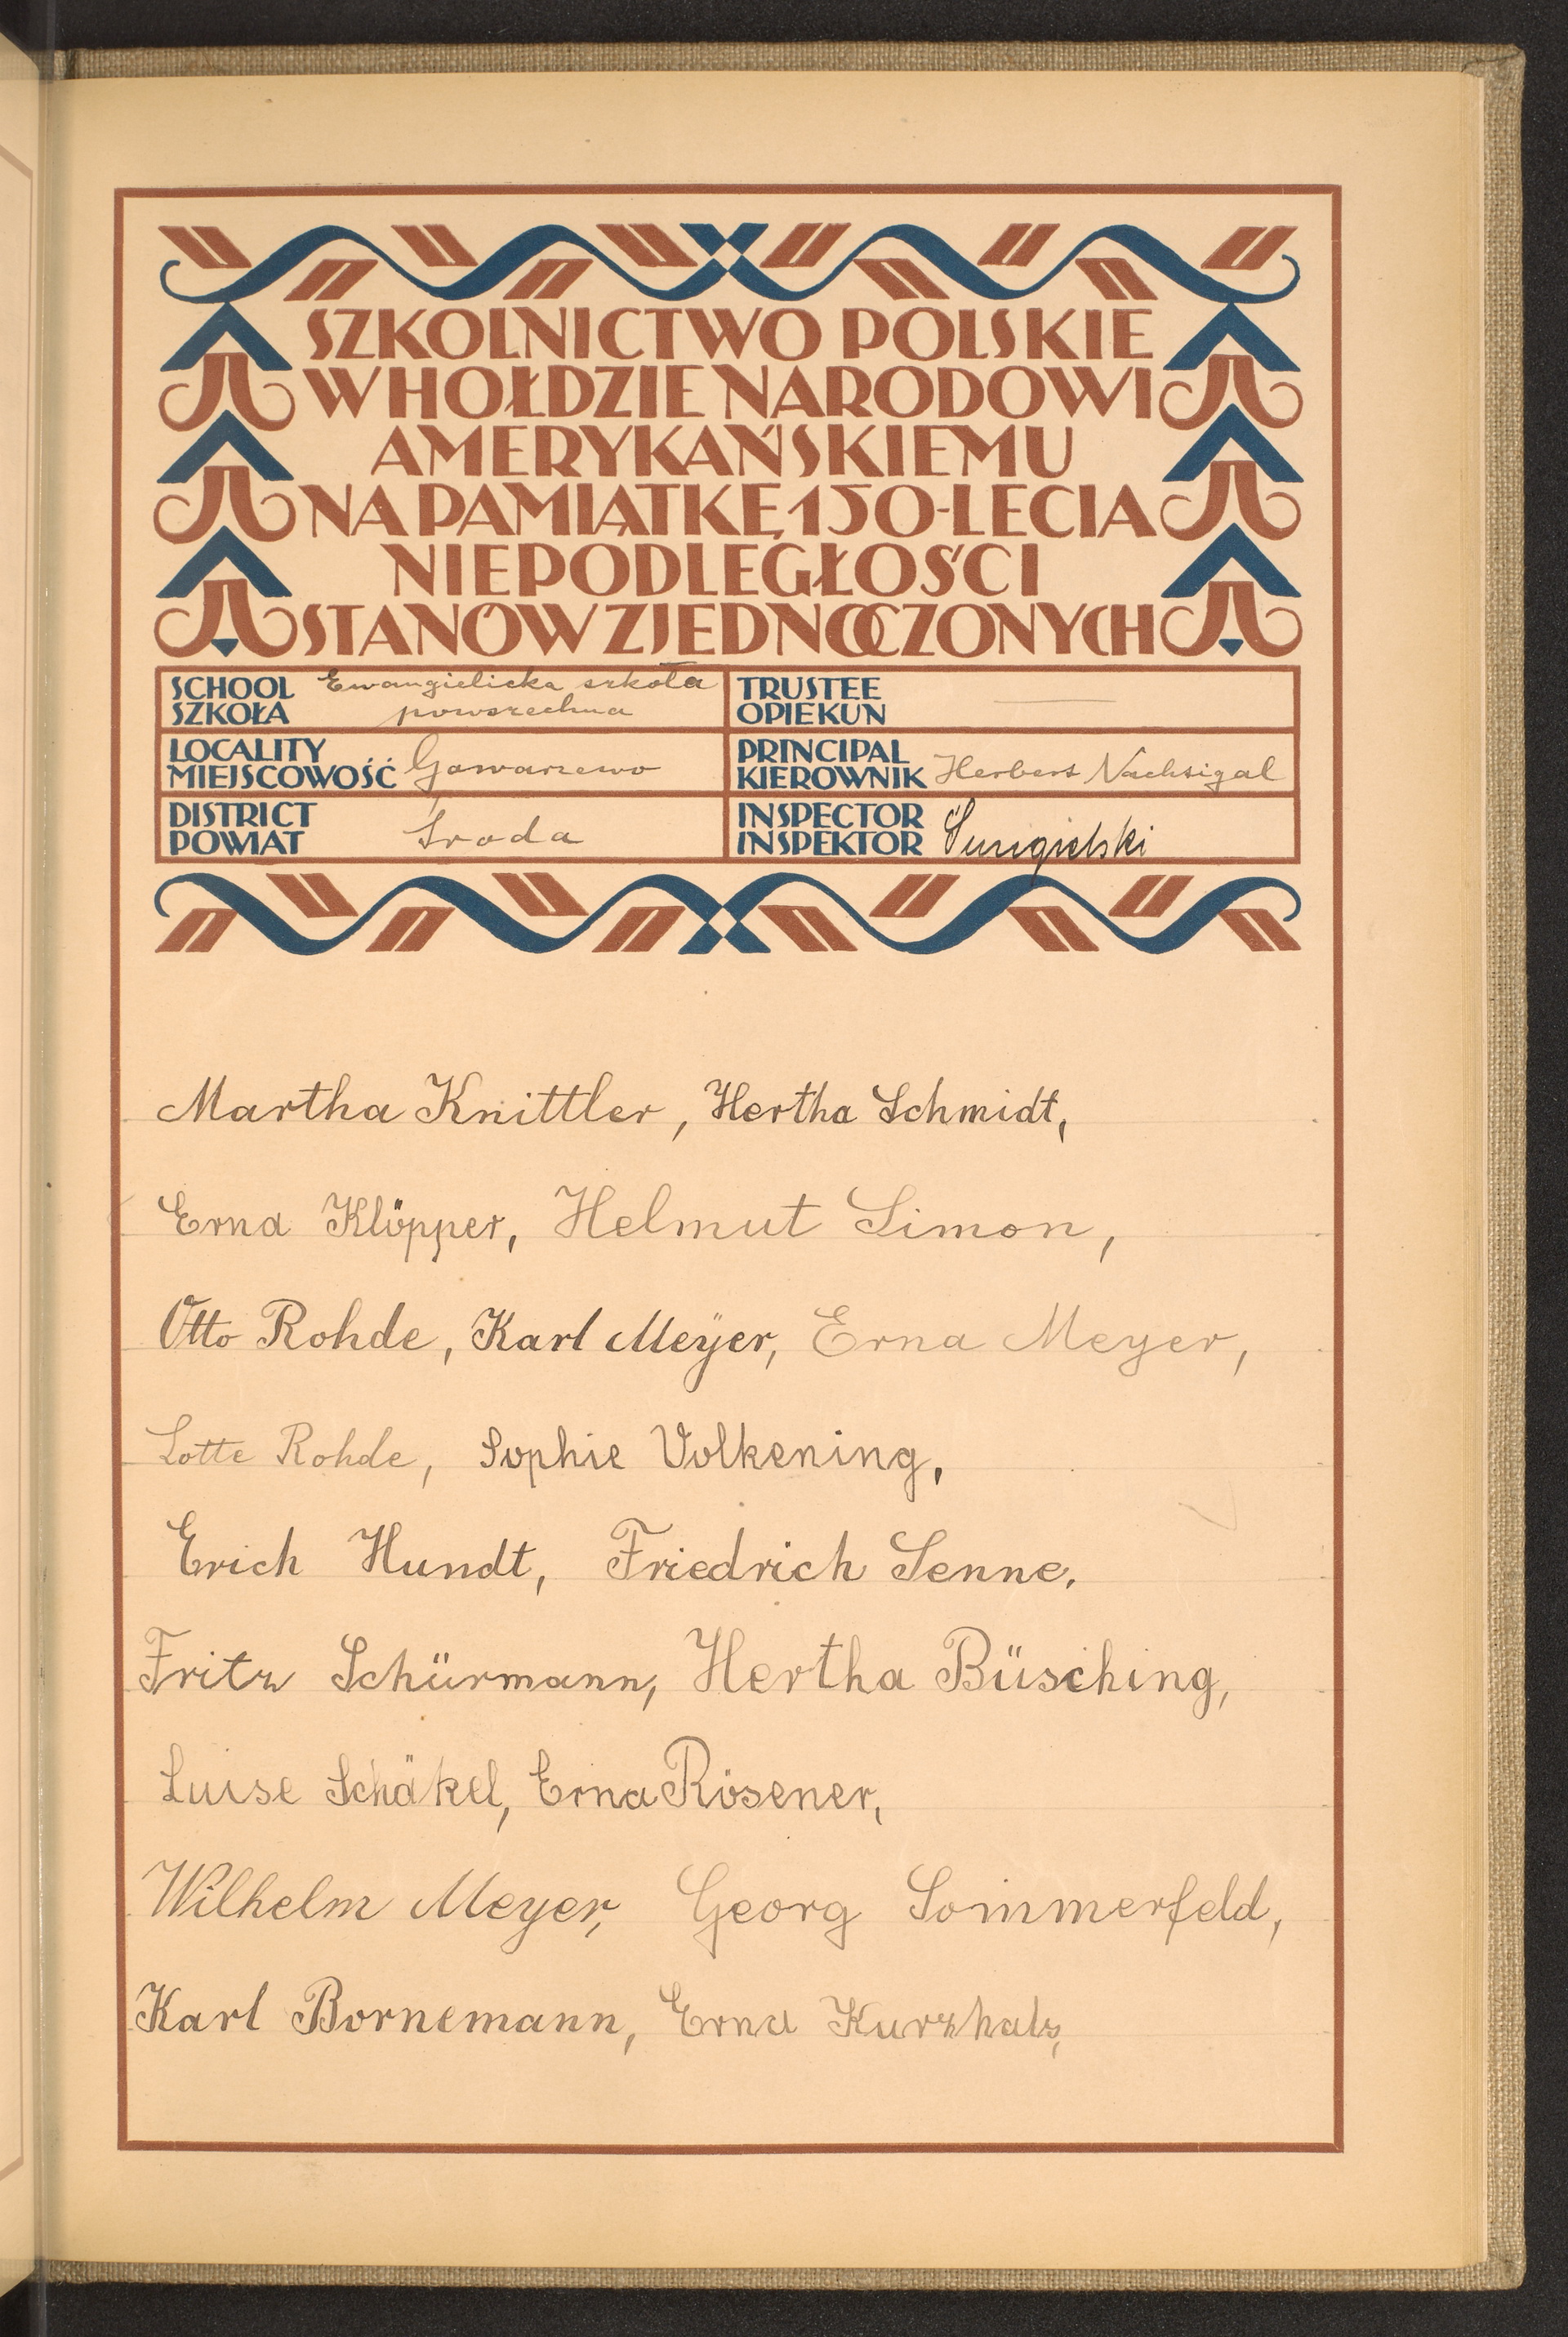 SZKOLNICTWO POLSKIE
W HOŁDZIE NARODOWI
AMERYKAŃSKIEMU
NA PAMIĄTKĘ 150-LECIA
NIEPODLEGŁOŚCI
STANÓW ZJEDNOCZONYCH
SCHOOL SZKOŁA Ewangielicka szkoła powszechna
TRUSTEE OPIEKUN
LOCALITY MIEJSCOWOŚĆ Gowarzewo
PRINCIPAL KIEROWNIK Herbert Nachtigal
DISTRICT POWIAT Środa
INSPECTOR INSPEKTOR
Martha Knittler, Hertha Schmidt,
Erna Klöpper, Helmut Simon,
Otto Rohde, Karl Meÿer, Erna Meyer,
Lotte Rohde, Sophie Volkening,
Erich Hundt, Friedrich Senne.
Fritz Schürmann, Hertha Büsching,
Luise Schäkel, Erna Rösener,
Wilhelm Meyer, Georg Sommerfeld,
Karl Bornemann, Erna Kurzhals,